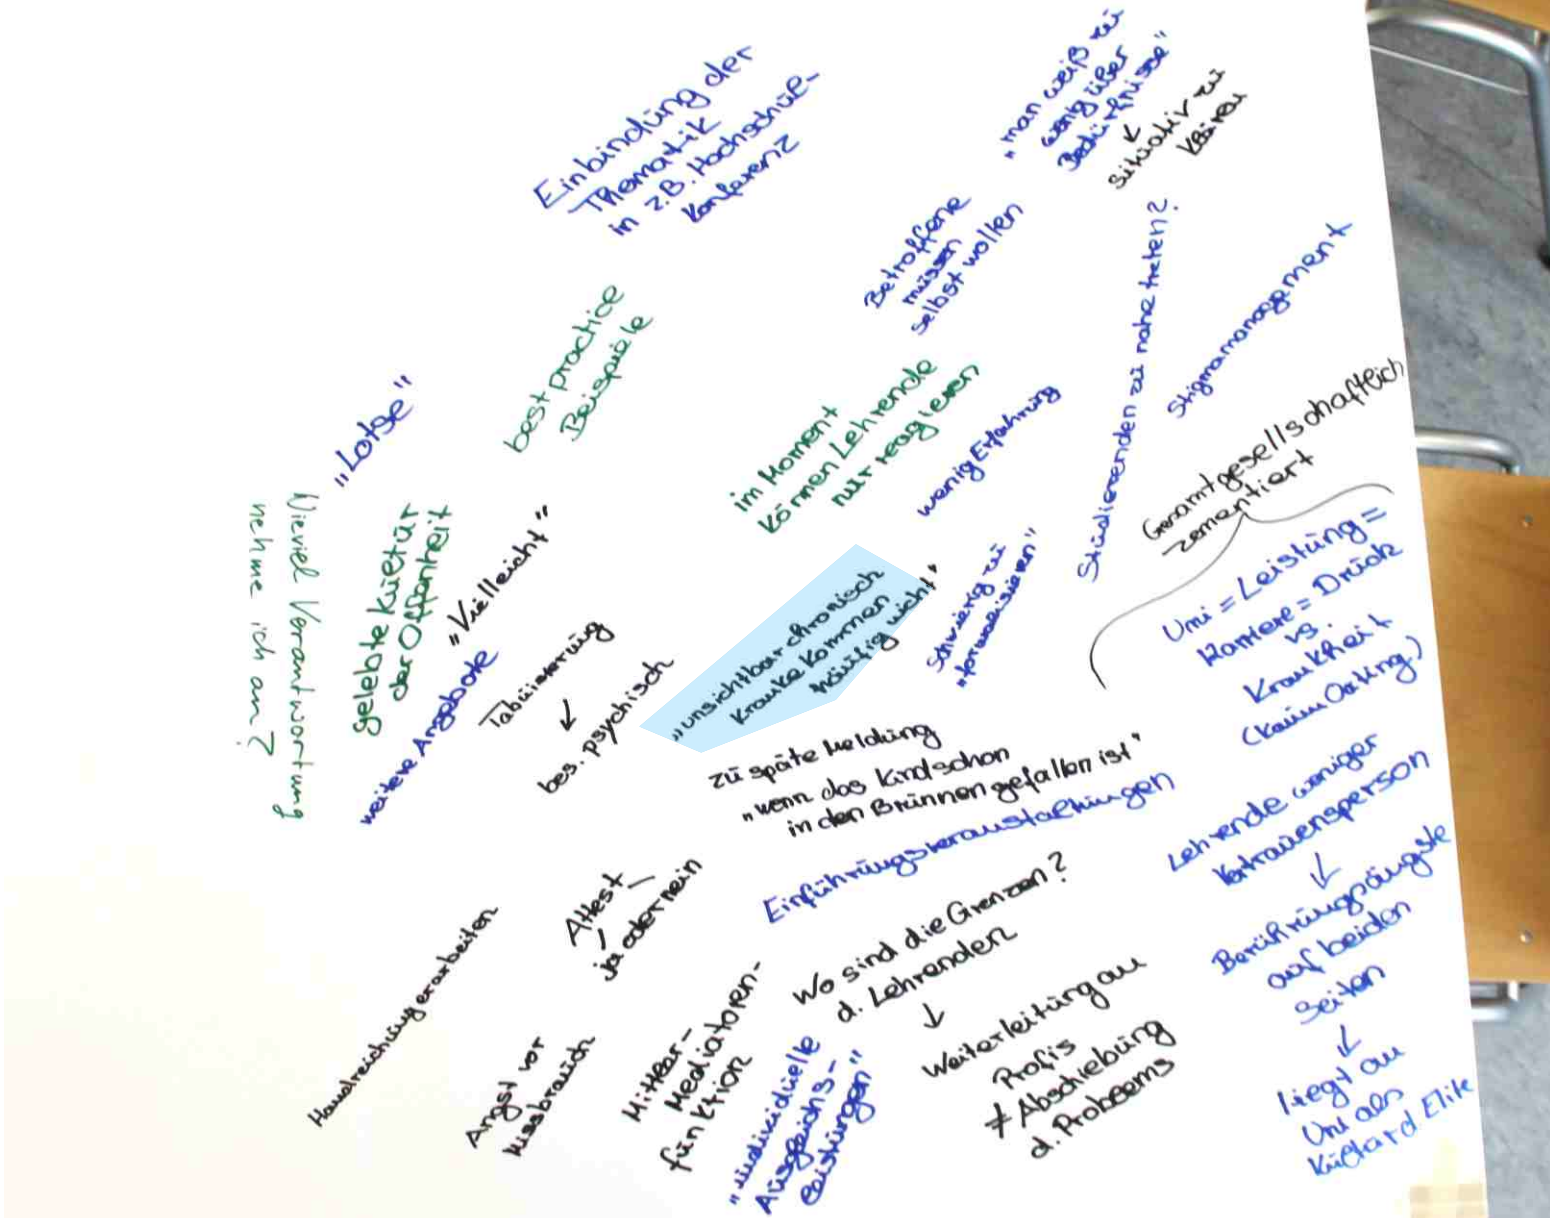 Einbindung der
Thematik
in z.B. Hochschul-
konferenz
"man weiß zu
wenig über
Bedürfnisse"
↙
situativ zu
klären
Betroffene
müssen
selbst wollen
Studierenden zu nahe treten?
Stigmamanagement
best practice
Beispiele
"Lotse"
im Moment
können Lehrende
nur reagieren
wenig Erfahrung
Gesamtgesellschaftlich
zementiert
Uni = Leistung =
Karriere = Druck
vs.
Krankheit
(kaum Outing)
Wieviel Verantwortung
nehme ich an?
gelebte Kultur
der Offenheit
"Vielleicht"
weitere Angebote
Tabuisierung
↙
bes. psychisch
"unsichtbar chronisch
Kranke kommen
häufig nicht"
Schwierig zu
"formalisieren"
zu späte Meldung
"wenn das Kind schon
in den Brunnen gefallen ist"
Einführungsveranstaltungen
Lehrende weniger
Vertrauensperson
↓
Berührungsängste
auf beiden
Seiten
↓
liegt an
Uni als
Elite
Attest
ja oder nein
Handreichung erarbeiten
Angst vor
Missbrauch
Mittler-
Mediatoren-
funktion
Wo sind die Grenzen?
d. Lehrenden
↓
Weiterleitung an
Profis
≠ Abschiebung
d. Problems
"individuelle
Ausgleichs-
leistungen"